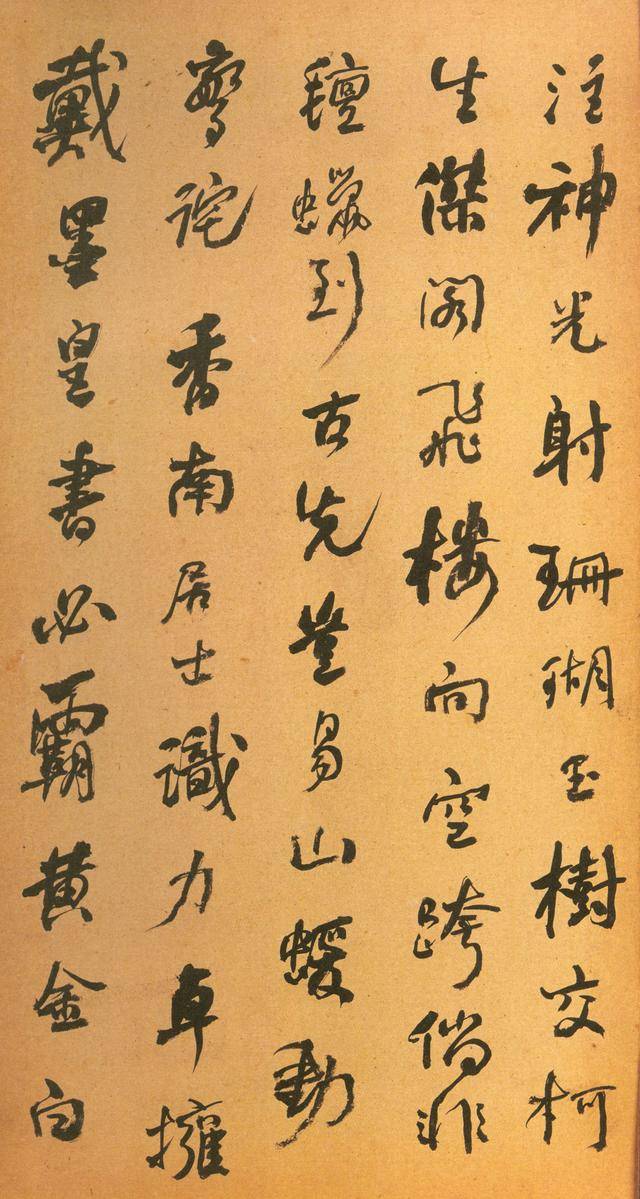 注神光射珊瑚玉樹交柯
生傑閣飛樓向空跨倘非
氊蠟到古先豈易山蝯動
驚詫香南居士識力卓擁
戴墨皇書必霸黃金白